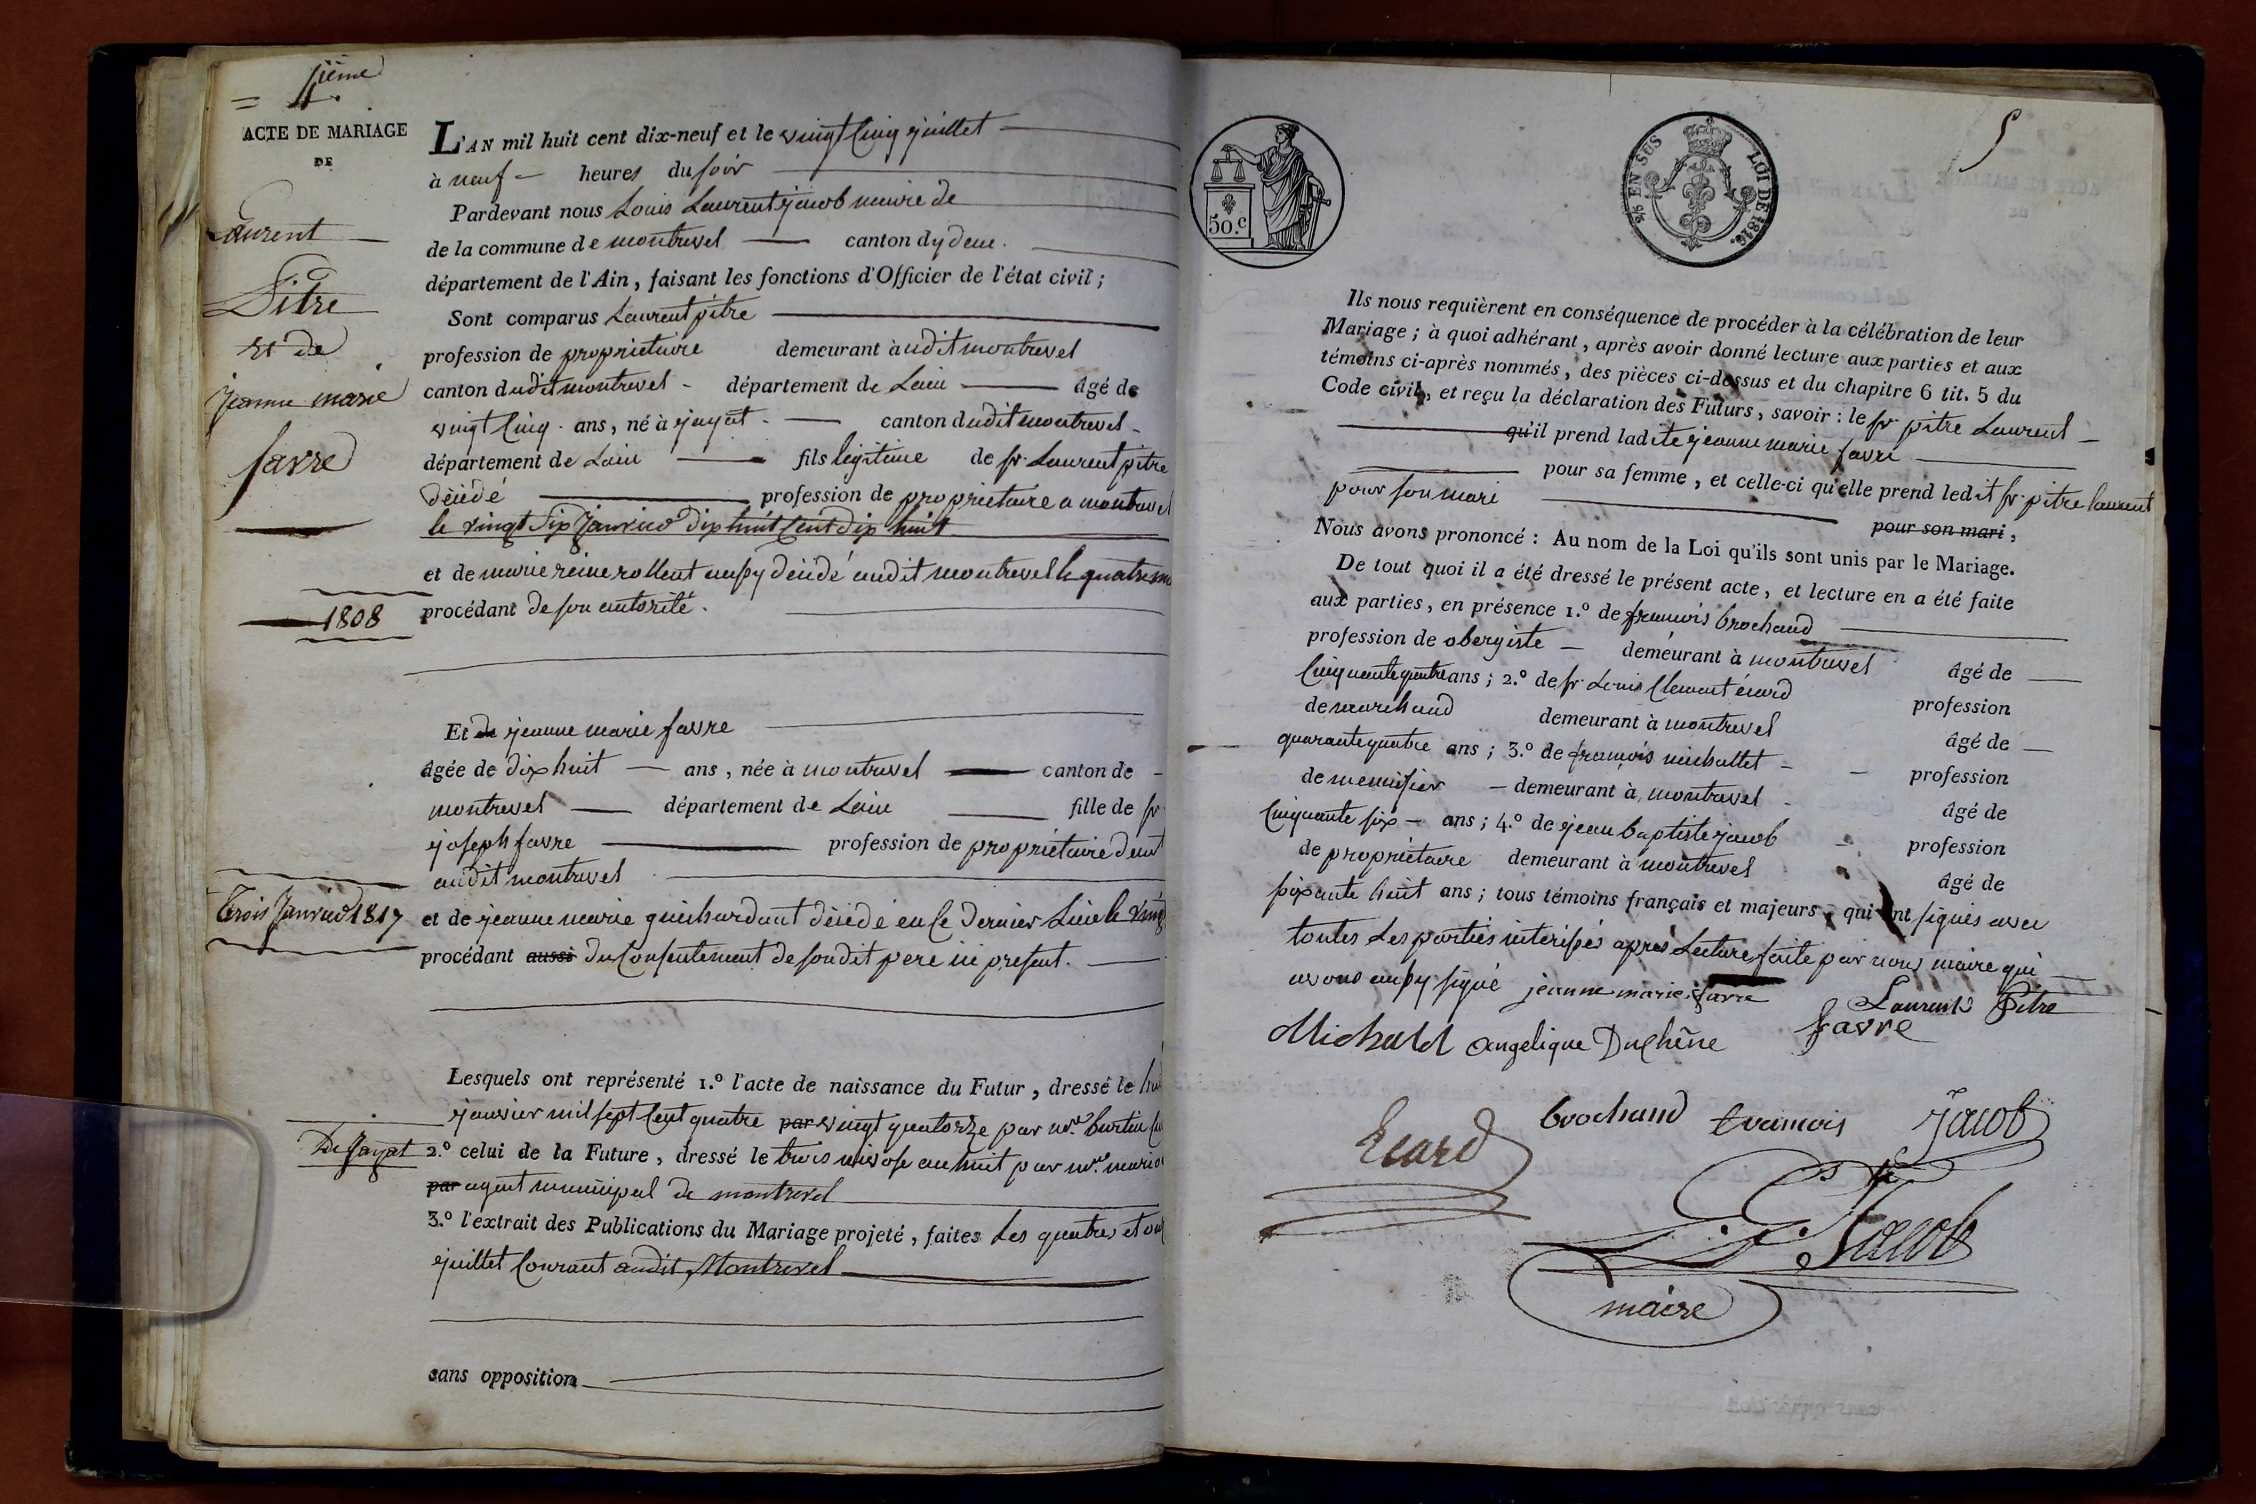 5ième
ACTE DE MARIAGE
DE
Laurent
Pitre
et de
jeanne marie
favre
1808
Trois Janvier 1817
De Jayat
L'AN mil huit cent dix-neuf et le vingt Cinq juillet
à neuf heures du soir
Pardevant nous Louis Laurent jacob maire de
de la commune de montrevel canton dydem.
département de l'Ain, faisant les fonctions d'Officier de l'état civil;
Sont comparus Laurent pitre
profession de proprietaire demeurant àudit montrevel
canton dudit montrevel département de Lain âgé de
vingt Cinq ans, né à jayat canton dudit montrevel
département de Lain fils legitime de sr. Laurent pitre
décédé profession de proprietaire a montrevel
le vingt six Janvier dix huit Cent dix huit
et de marie reine rollent aussy décédé audit montrevel le quatre
procédant de son autorité.
Et de jeanne marie favre
âgée de dix huit ans, née à montrevel canton de
montrevel département de Lain fille de sr
joseph favre profession de propriétaire demt
audit montrevel
et de jeanne marie guichardant décédé en Ce dernier Lieu le vingt
procédant aussi du Consentement de sondit pere ici present.
Lesquels ont représenté 1.º l'acte de naissance du Futur, dressé le huit
janvier mil sept Cent quatre par vingt quatorze par mre. burtin
2.º celui de la Future, dressé le trois nivose an huit par mre.
par agent municipal de montrevel
3.º l'extrait des Publications du Mariage projeté, faites Les quatre et
juillet Courant audit Montrevel
sans opposition
5
50.c
2/6 EN SUS LOI DE 1816.
Ils nous requièrent en conséquence de procéder à la célébration de leur
Mariage; à quoi adhérant, après avoir donné lecture aux parties et aux
témoins ci-après nommés, des pièces ci-dessus et du chapitre 6 tit. 5 du
Code civil, et reçu la déclaration des Futurs, savoir: le sr pitre Laurent
qu'il prend ladite jeanne marie favre
pour sa femme, et celle-ci qu'elle prend ledit sr. pitre laurent
pour son mari pour son mari,
Nous avons prononcé: Au nom de la Loi qu'ils sont unis par le Mariage.
De tout quoi il a été dressé le présent acte, et lecture en a été faite
aux parties, en présence 1.º de françois brochand
profession de obergiste demeurant à montrevel âgé de
Cinquante quatre ans; 2.º de sr. Louis Clement écard profession
de marchand demeurant à montrevel âgé de
quarante quatre ans; 3.º de françois michallet profession
de menuisier demeurant à montrevel âgé de
Cinquante six ans; 4.º de jean baptiste jacob profession
de propriétaire demeurant à montrevel âgé de
soixante huit ans; tous témoins français et majeurs, qui ont signés avec
toutes Les parties interessés après Lecture faite par nous maire qui
avons aussy signé jeanne marie favre Laurent Pitre
Michald angelique Duchêne favre
Ecard brochand francois Jacob
Jacob
maire